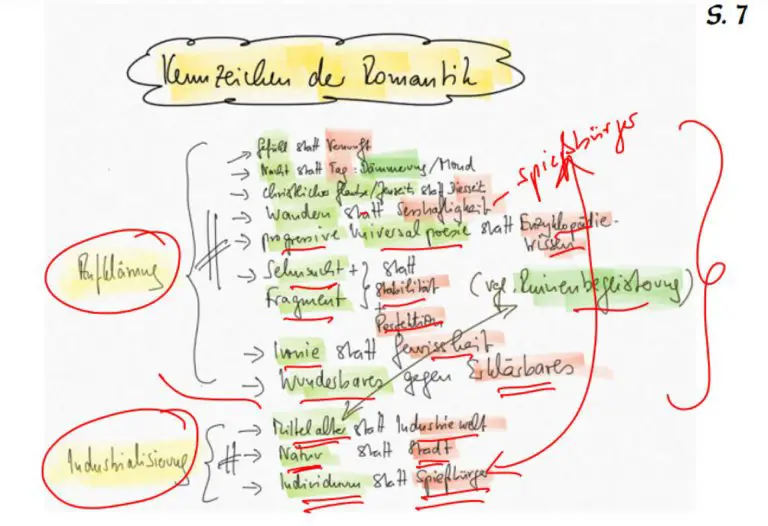 S. 7
Kennzeichen der Romantik
→ Gefühl statt Vernunft
→ Nacht statt Tag: Dämmerung/Mond
→ Christlicher Glaube/Jenseits statt Diesseits
→ Wandern statt Sesshaftigkeit
Spießbürger
→ progressive Universalpoesie statt Enzyklopädie-
wissen
Aufklärung
→ Sehnsucht + statt
Fragment Stabilität
+
Perfektion
(vgl. Ruinenbegeisterung)
→ Ironie statt Gewissheit
→ Wunderbares gegen Erklärbares
Industrialisierung
→ Mittelalter statt Industriewelt
→ Natur statt Stadt
→ Individuum statt Spießbürger